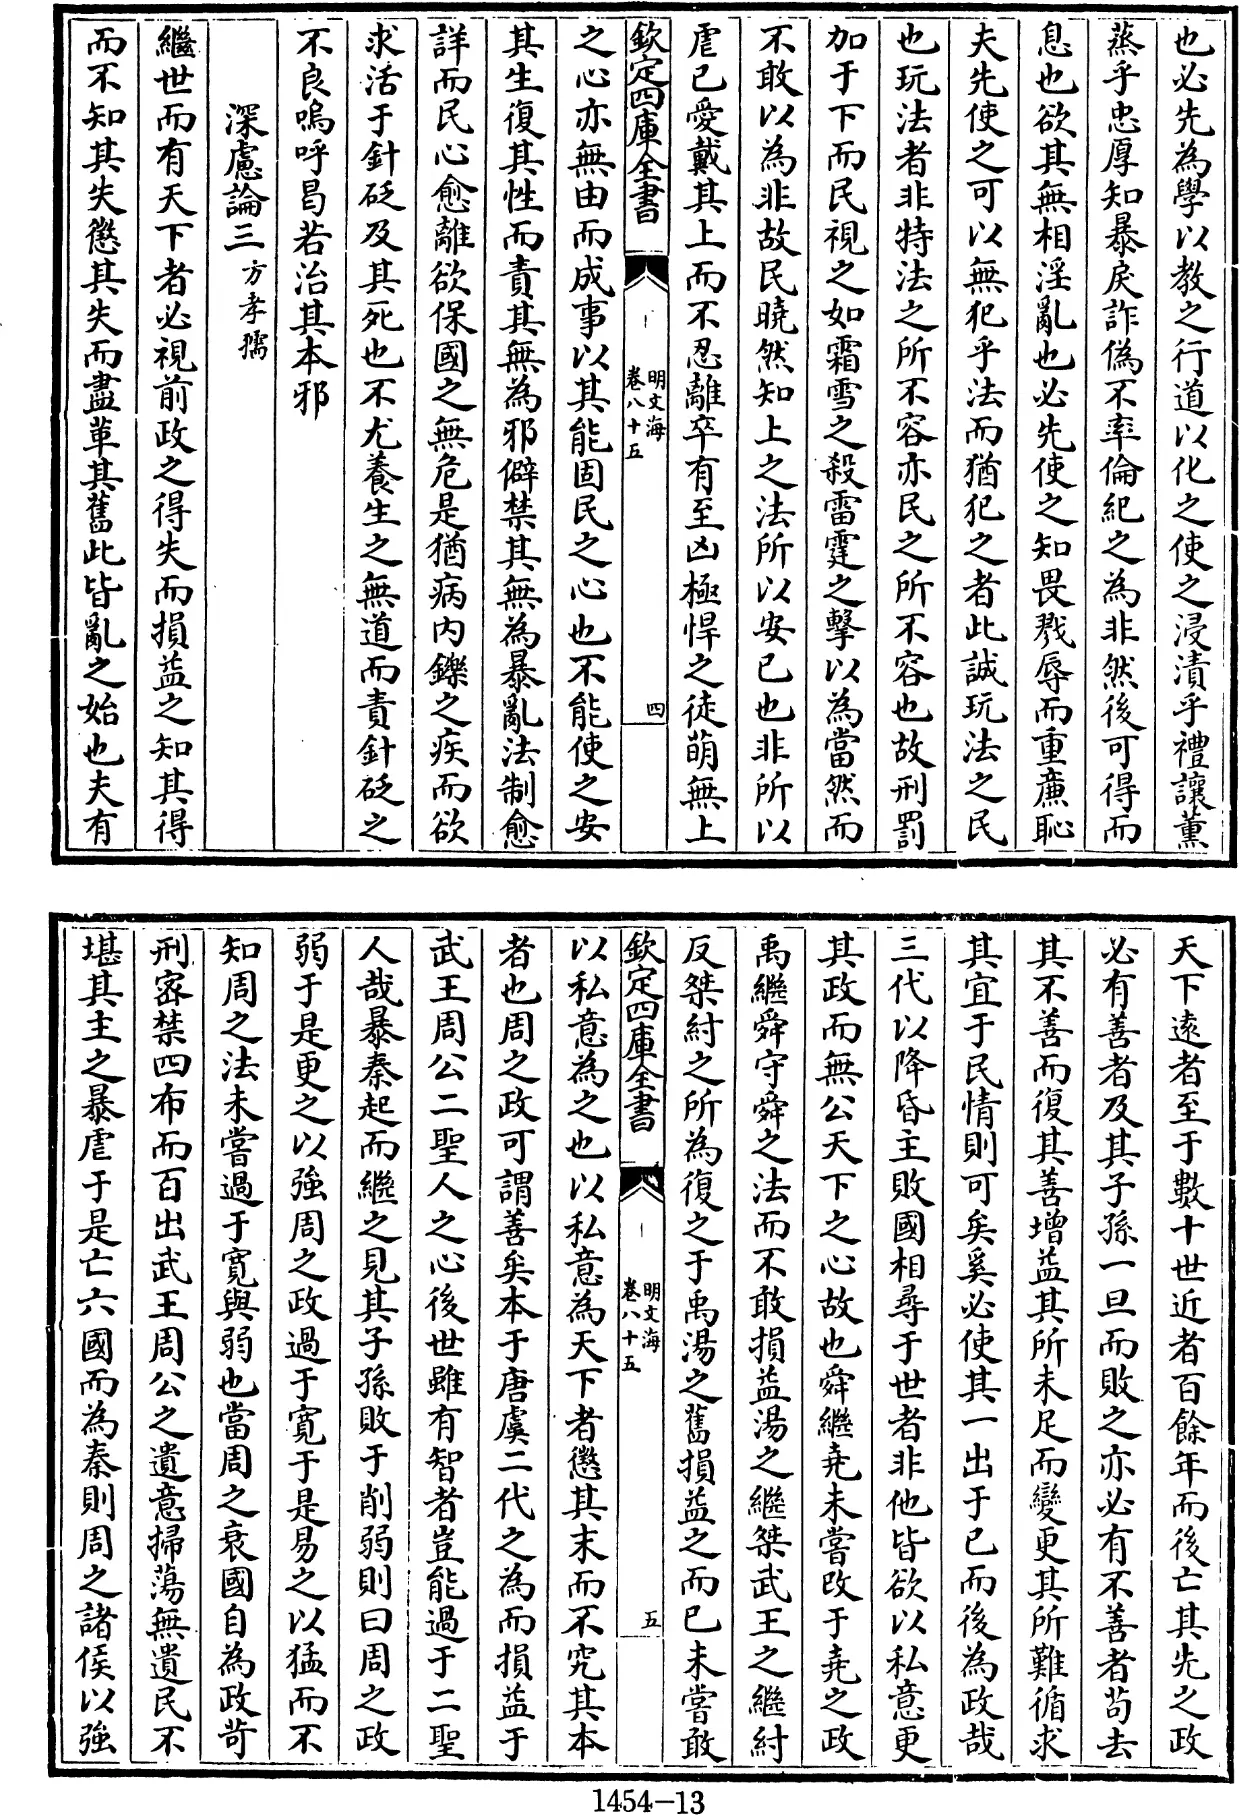 也必先為學以教之行道以化之使之浸漬乎禮讓薰
蒸乎忠厚知暴戾詐偽不率倫紀之為非然後可得而
息也欲其無相淫亂也必先使之知畏戮辱而重廉恥
夫先使之可以無犯乎法而猶犯之者此誠玩法之民
也玩法者非特法之所不容亦民之所不容也故刑罰
加于下而民視之如霜雪之殺雷霆之擊以為當然而
不敢以為非故民曉然知上之法所以安已也非所以
虐已愛戴其上而不忍離卒有至凶極悍之徒萌無上
欽定四庫全書
明文海
卷八十五
四
之心亦無由而成事以其能固民之心也不能使之安
其生復其性而責其無為邪僻禁其無為暴亂法制愈
詳而民心愈離欲保國之無危是猶病內鑠之疾而欲
求活于針砭及其死也不尤養生之無道而責針砭之
不良嗚呼曷若治其本邪
深慮論三 方孝孺
繼世而有天下者必視前政之得失而損益之知其得
而不知其失懲其失而盡革其舊此皆亂之始也夫有
天下遠者至于數十世近者百餘年而後亡其先之政
必有善者及其子孫一旦而敗之亦必有不善者苟去
其不善而復其善增益其所未足而變更其所難循求
其宜于民情則可矣奚必使其一出于已而後為政哉
三代以降昏主敗國相尋于世者非他皆欲以私意更
其政而無公天下之心故也舜繼堯未嘗改于堯之政
禹繼舜守舜之法而不敢損益湯之繼桀武王之繼紂
反桀紂之所為復之于禹湯之舊損益之而已未嘗敢
欽定四庫全書
明文海
卷八十五
五
以私意為之也以私意為天下者懲其末而不究其本
者也周之政可謂善矣本于唐虞二代之為而損益于
武王周公二聖人之心後世雖有智者豈能過于二聖
人哉暴秦起而繼之見其子孫敗于削弱則曰周之政
弱于是更之以強周之政過于寛于是易之以猛而不
知周之法未嘗過于寛與弱也當周之衰國自為政苛
刑宻禁四布而百出武王周公之遺意掃蕩無遺民不
堪其主之暴虐于是亡六國而為秦則周之諸侯以強
1454—13